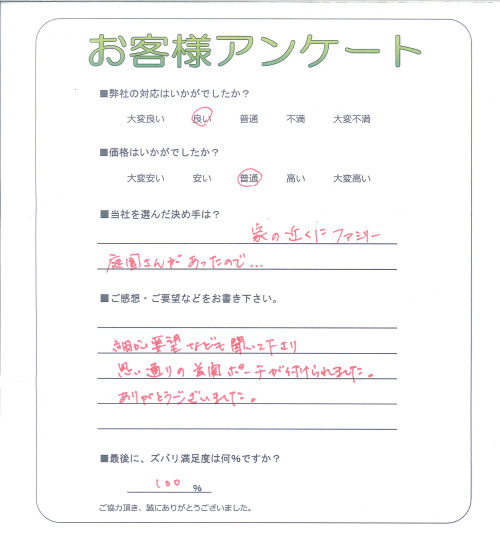 お客様アンケート
■弊社の対応はいかがでしたか？
大変良い 良い 普通 不満 大変不満
■価格はいかがでしたか？
大変安い 安い 普通 高い 大変高い
■当社を選んだ決め手は？
家の近くにファミリー
庭園さんがあったので…
■ご感想・ご要望などをお書き下さい。
細かい要望なども聞いて下さり
思い通りの玄関ポーチが付けられました。
ありがとうございました。
■最後に、ズバリ満足度は何%ですか？
100 %
ご協力頂き、誠にありがとうございました。